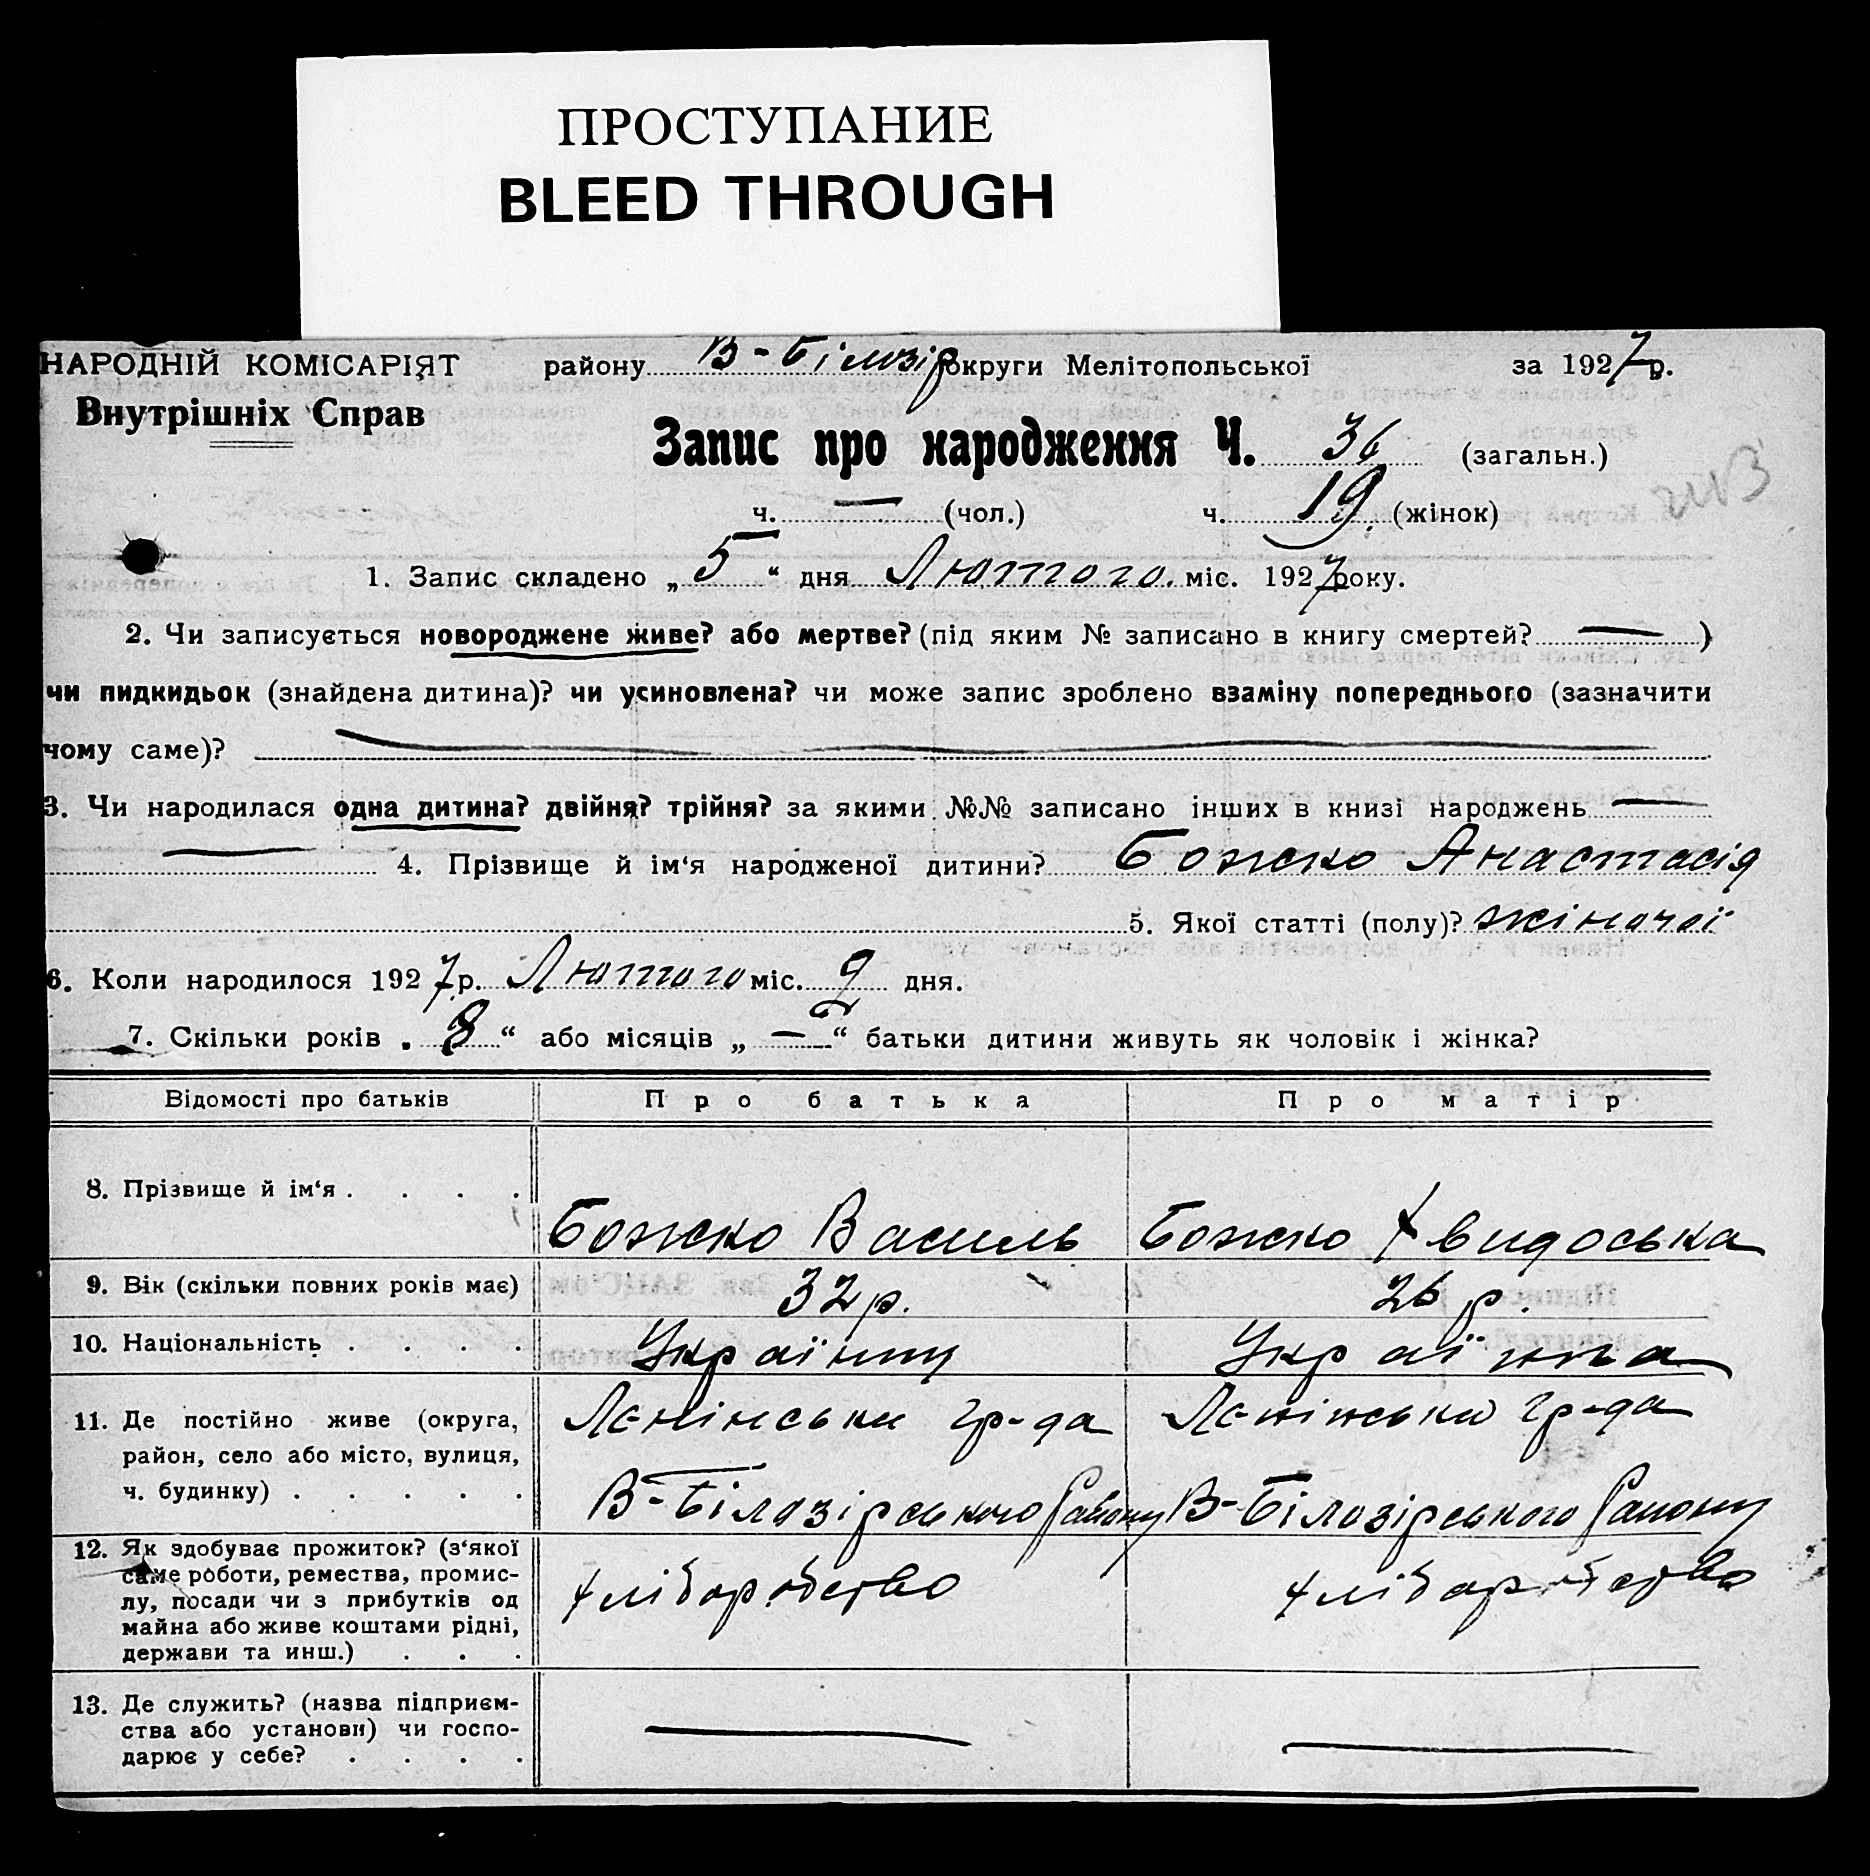 ПРОСТУПАНИЕ
BLEED THROUGH
НАРОДНІЙ КОМІСАРІЯТ району В-Білозір округи Мелітопольської за 1927 р.
Внутрішніх Справ
Запис про народження Ч. 36 (загальн.)
ч. — (чол.) ч. 19 (жінок)
1. Запис складено „5“ дня Лютого міс. 1927 року.
2. Чи записується новороджене живе? або мертве? (під яким № записано в книгу смертей? — )
чи пидкидьок (знайдена дитина)? чи усиновлена? чи може запис зроблено взаміну попереднього (зазначити
чому саме)? —
3. Чи народилася одна дитина? двійня? трійня? за якими №№ записано інших в книзі народжень —
— 4. Прізвище й ім‘я народженої дитини? Божко Анастасія
5. Якої статті (полу)? жіночої
6. Коли народилося 1927 р. Лютого міс. 2 дня.
7. Скільки років „8“ або місяців „—“ батьки дитини живуть як чоловік і жінка?
Відомості про батьків Про батька Про матір
8. Прізвище й ім‘я . . . . Божко Василь Божко Хвидоська
9. Вік (скільки повних років має) 32 р. 26 р.
10. Національність . . . . Українец Українка
11. Де постійно живе (округа, Лєнінськи гр-да Лєнінськи гр-да
район, село або місто, вулиця,
ч. будинку) . . . . . В-Білозірського Району В-Білозірського Району
12. Як здобуває прожиток? (з‘якої
саме роботи, ремества, промис- хліборобство хліборобство
лу, посади чи з прибутків од
майна або живе коштами рідні,
держави та инш.) . . .
13. Де служить? (назва підприєм-
ства або установи) чи госпо- — —
дарює у себе? . . . .